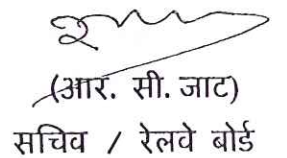 (आर. सी. जाट)
सचिव / रेलवे बोर्ड